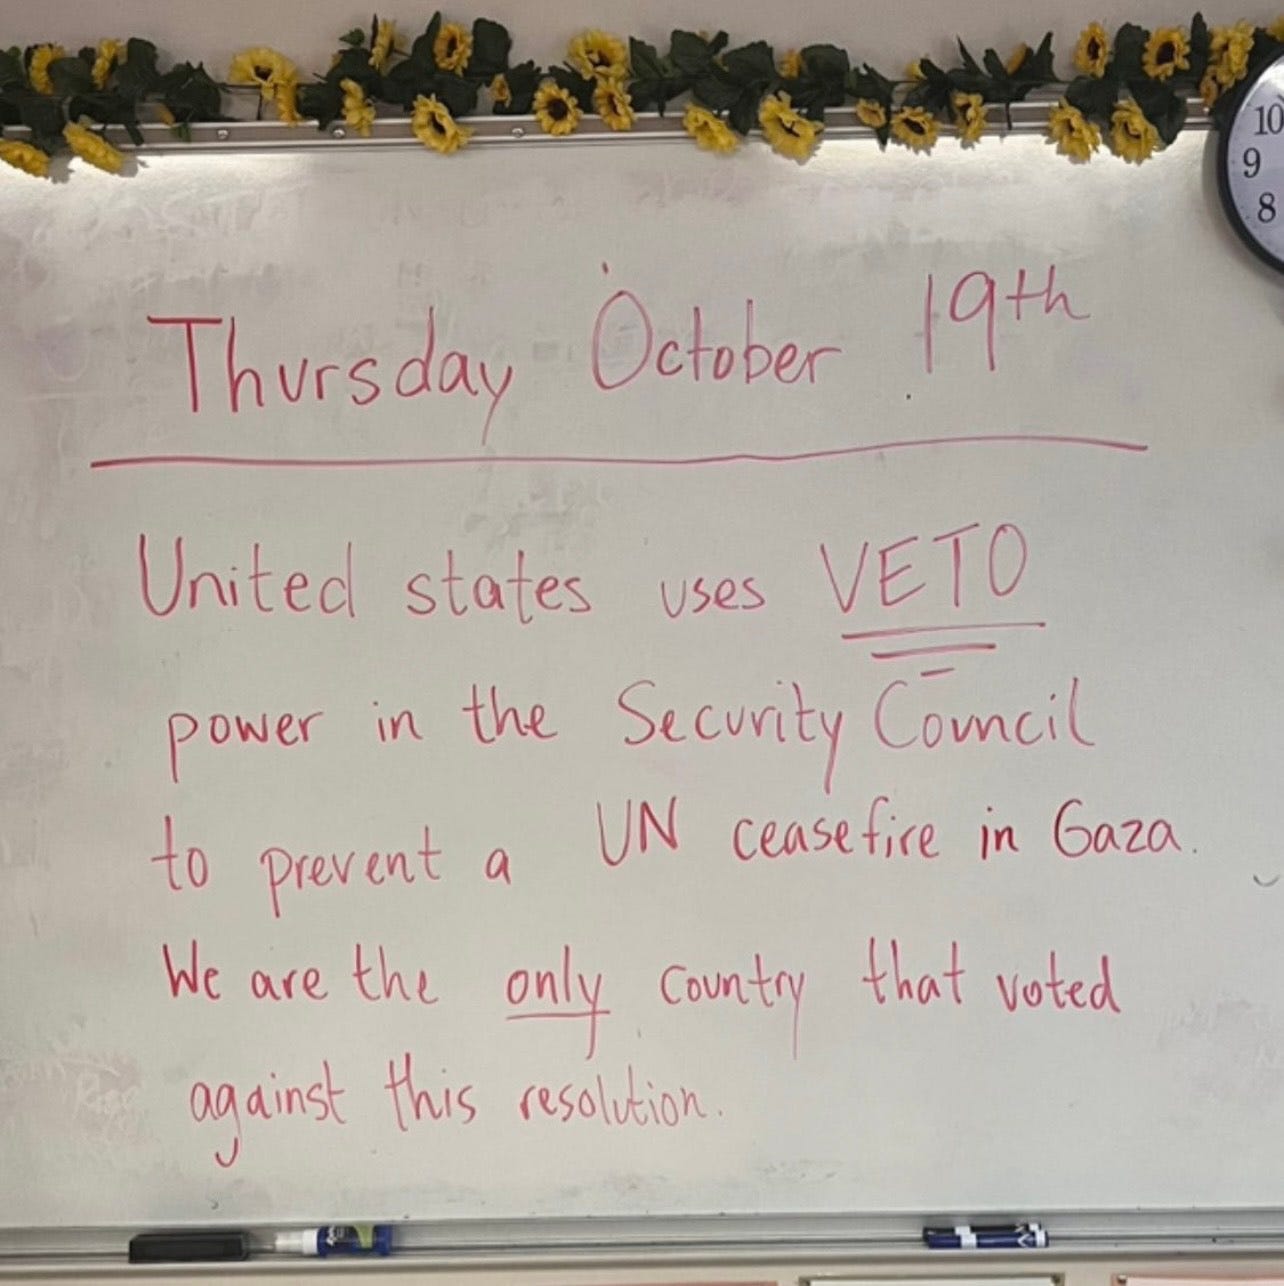 10
9
8
Thursday October 19th
United states uses VETO
power in the Security Council
to prevent a UN ceasefire in Gaza.
We are the only country that voted
against this resolution.